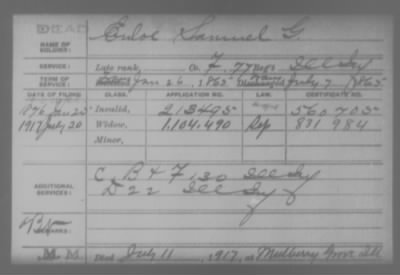 DEAD
NAME OF SOLDIER: Enloe Samuel G.
SERVICE: Late rank, Co. F, 77 Reg't Ill Inf
TERM OF SERVICE: Enlisted Jan 26, 1865 Discharged July 7, 1865
DATE OF FILING. CLASS. APPLICATION NO. LAW. CERTIFICATE NO.
1876 Jan 25 Invalid, 213495 560703
1917 July 20 Widow, 1.104.490 831984
Minor,
ADDITIONAL SERVICES: C. B & F 130 Ill Inf
D 22 Ill Inf
REMARKS:
Died July 11, 1917, at Mulberry Grove Ill